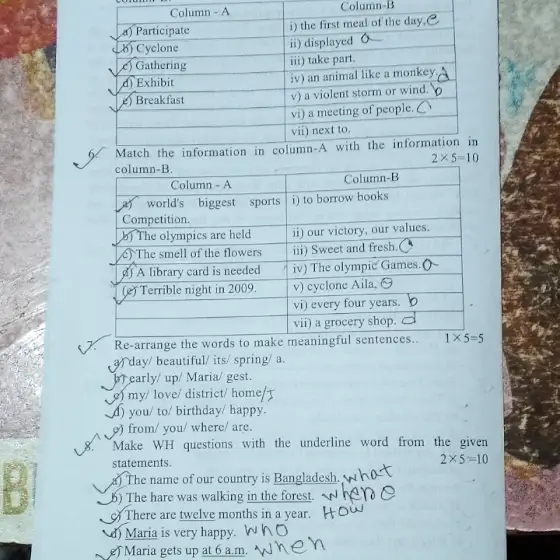 Column - A Column-B
a) Participate i) the first meal of the day. e
b) Cyclone ii) displayed a
c) Gathering iii) take part.
d) Exhibit iv) an animal like a monkey. d
e) Breakfast v) a violent storm or wind. b
vi) a meeting of people. C
vii) next to.
6. Match the information in column-A with the information in
column-B. 2×5=10
Column - A Column-B
a) world's biggest sports i) to borrow books
Competition.
b) The olympics are held ii) our victory, our values.
c) The smell of the flowers iii) Sweet and fresh. C
d) A library card is needed iv) The olympic Games. a
(e) Terrible night in 2009. v) cyclone Aila, e
vi) every four years. b
vii) a grocery shop. d
7. Re-arrange the words to make meaningful sentences.. 1×5=5
a) day/ beautiful/ its/ spring/ a.
b) early/ up/ Maria/ gest.
c) my/ love/ district/ home/I
d) you/ to/ birthday/ happy.
e) from/ you/ where/ are.
8. Make WH questions with the underline word from the given
statements. 2×5=10
a) The name of our country is Bangladesh. what
b) The hare was walking in the forest. where
c) There are twelve months in a year. How
d) Maria is very happy. who
e) Maria gets up at 6 a.m. when
B